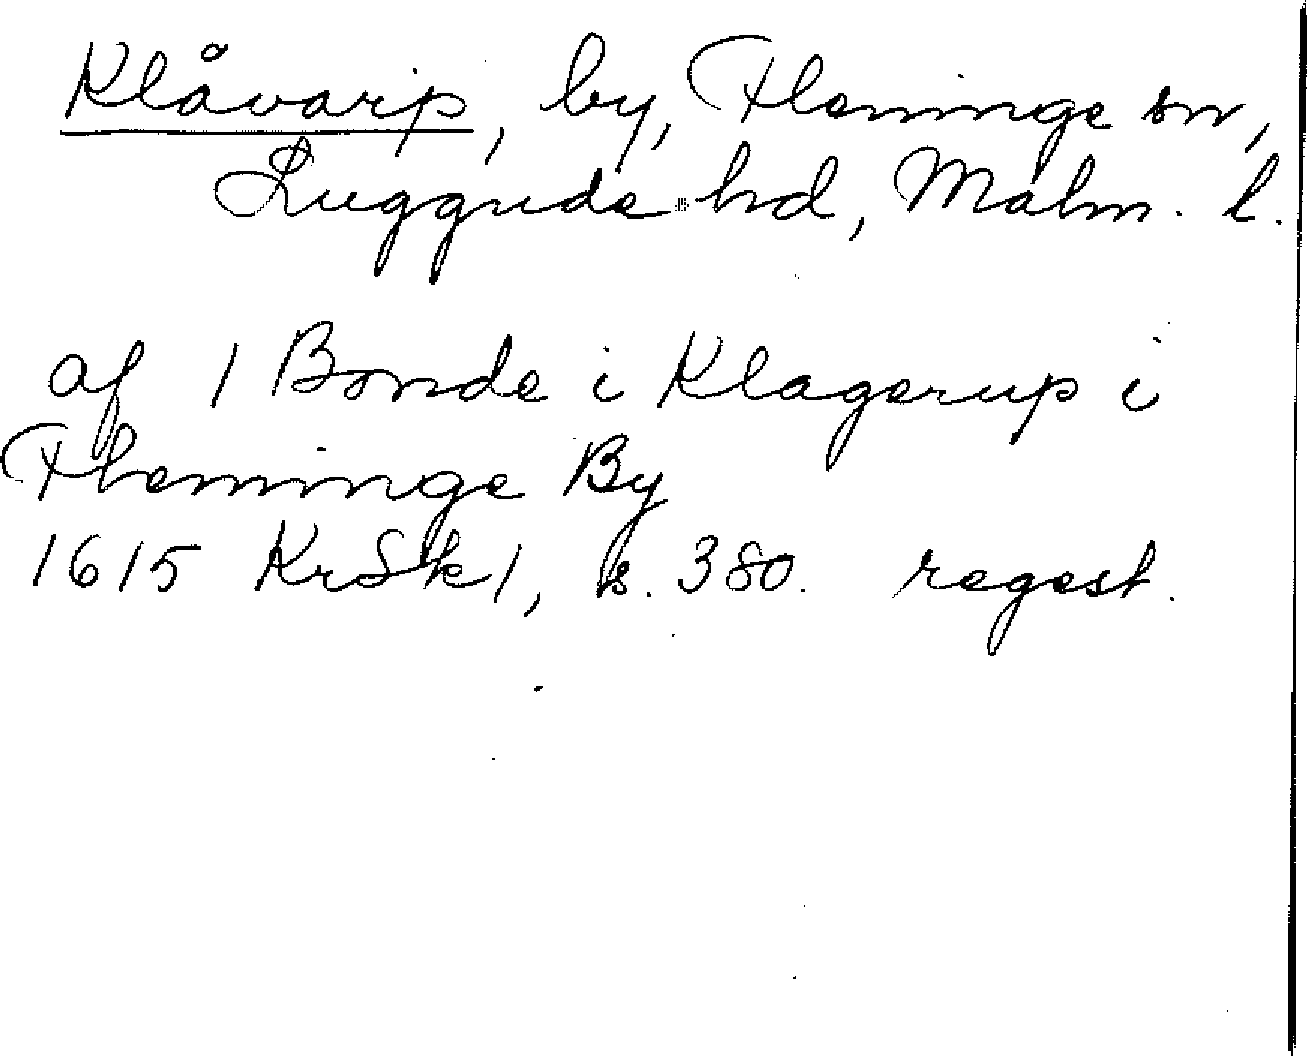 Klåvarp, by, Fleninge sn,
Luggude hd, Malm. l.
af 1 Bonde i Klagerup i
Fleninge By
1615 KrSk1, s. 380. regest.